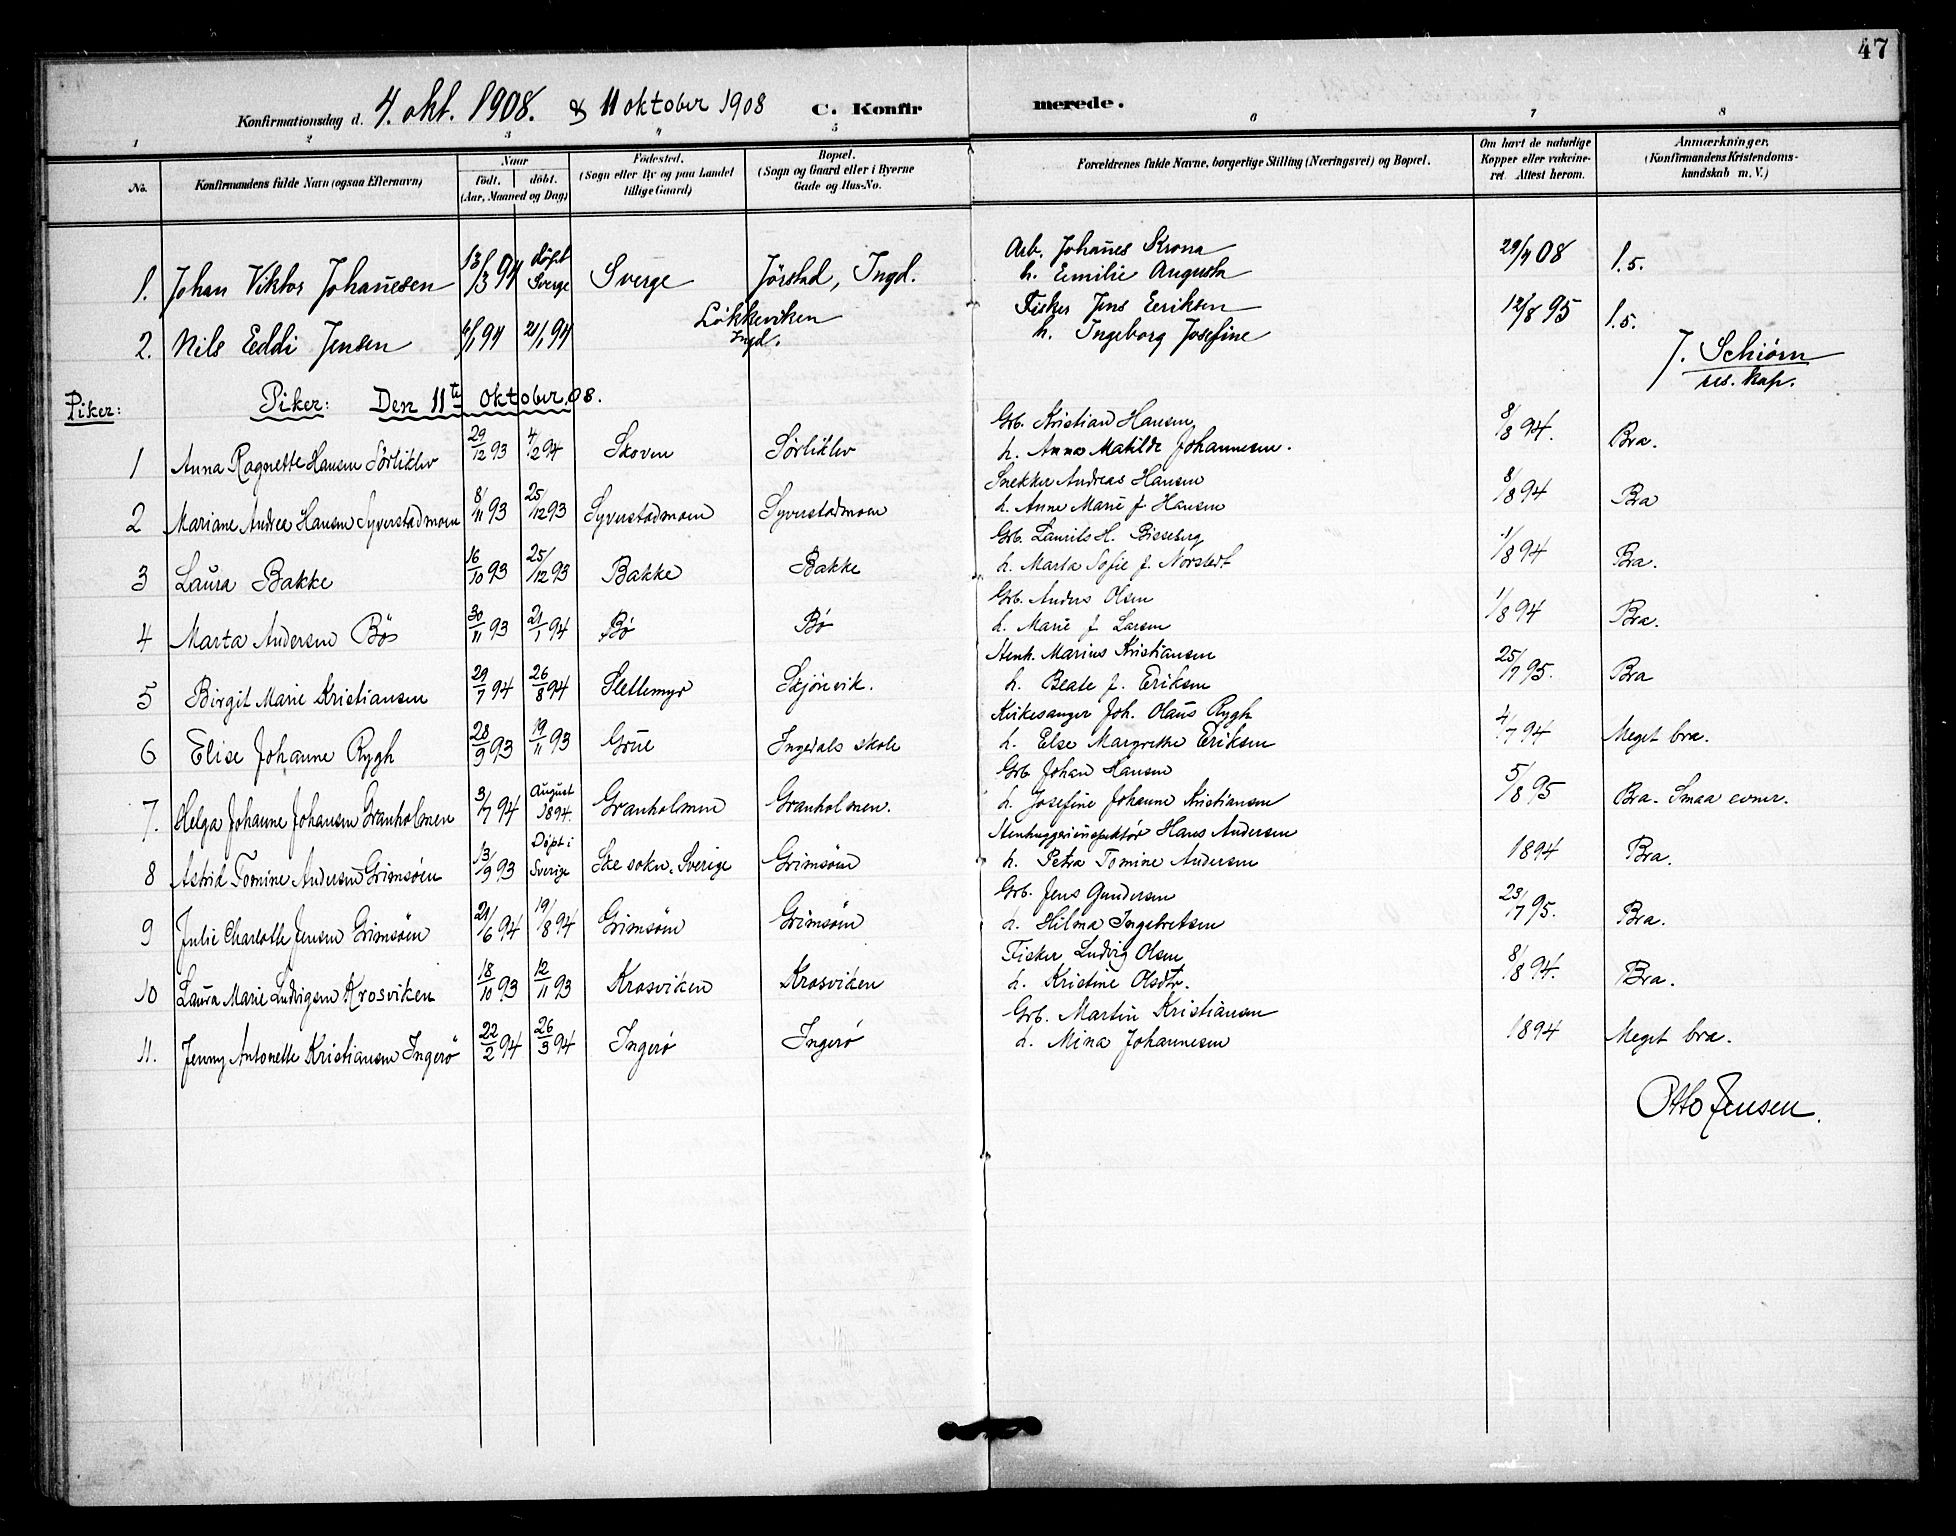 47
Konfirmationsdag d. 4. okt. 1908. & 11 oktober 1908 C. Konfirmerede.
1 2 3 4 5 6 7 8
No.
Konfirmandens fulde Navn (ogsaa Efternavn)
Naar
født, døbt.
(Aar, Maaned og Dag)
Fødested.
(Sogn eller By og paa Landet
tillige Gaard)
Bopæl.
(Sogn og Gaard eller i Byerne
Gade og Hus-No.
Forældrenes fulde Navne, borgerlige Stilling (Næringsvei) og Bopæl.
Om havt de naturlige
Kopper eller vakcine-
ret. Attest herom.
Anmærkninger.
(Konfirmandens Kristendoms-
kundskab m. V.)
1. Johan Viktor Johanesen 13/3 94 Døpt Sverge Sverge Jørstad, Ingd. Arb. Johanes Krona 29/9 08 1.5.
h. Emilie Augusta
2. Nils Eddi Jensen 94 21/1 94 Løkkeviken Fisker Jens Eeriksen 12/8 95 1.5.
Ingd. h. Ingeborg Josefine
J. Schiørn
res. kap.
Piker: Piker: Den 11te Oktober 08.
1 Anna Ragnette Hansen Sørliklev 29/12 93 4/2 94 Skoven Sørliklev Grb. Kristian Hansen 8/8 94. Bra.
h. Anna Matilde Johannesen.
2 Mariane Andrea Hansen Syverstadmoen 8/11 93 25/12 93 Syverstadmoen Syverstadmoen Snekker Andreas Hansen 8/8 94 Bra
h. Anne Marie f. Hansen
3 Laura Bakke 16/10 93 25/12 93 Bakke Bakke Grb. Laurits H. Bisseberg 1/8 94 Bra.
h. Marta Sofie f. Norstedt
4 Marta Andersen Bø 30/11 93 21/1 94 Bø Bø Grb. Anders Olsen 1/8 94 Bra.
h. Marie f. Larsen
5 Birgit Marie Kristiansen 29/7 94 26/8 94 Slettemyr Skjønvik. Stenh. Marius Kristiansen 25/7 95. Bra
h. Beate f. Eriksen
6 Elise Johanne Rygh 28/9 93 19/11 93 Grue Ingedals skole Kirkesanger Joh. Olaus Rygh 4/7 94 Meget bra.
h. Else Margrethe Eriksen
7. Helga Johanne Johansen Granholmen 3/7 94 August 1894. Granholmen Granholmen. Grb Johan Hansen 5/8 95 Bra. Smaa evner.
h. Josefine Johanne Kristiansen
8 Astrid Tomine Andersen Grimsøen 13/9 93 Døpt i Sverige Ske sokn. Sverige Grimsøen Stenhuggeriinspektør Hans Andersen 1894 Bra.
h. Petra Tomine Andersen
9 Julie Charlotte Jensen Grimsøen 21/6 94 19/8 94 Grimsøen Grimsøen Grb. Jens Gundersen 23/7 95. Bra.
h. Hilma Ingebretsen
10 Laura Marie Ludvigsen Krosviken 18/10 93 12/11 93 Krosviken Krosviken Fisker Ludvig Olsen 8/8 94. Bra.
h. Kristine Olsdtr.
11. Jenny Antonette Kristiansen Ingerø 22/2 94 26/3 94 Ingerø Ingerø Grb. Martin Kristiansen 1894 Meget bra.
h. Mina Johannesen
Otto Jensen.